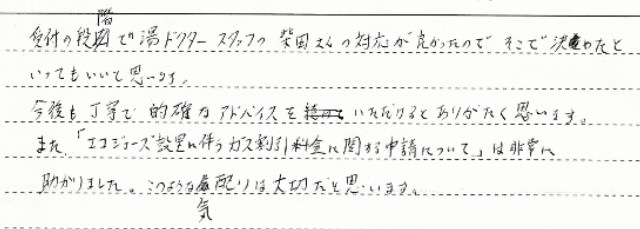 受付の段階で湯ドクタースタッフの柴田さんの対応が良かったので そこで決めたと
いってもいいと思います。
今後も丁寧で的確なアドバイスを いただけるとありがたく思います。
また、「エコジョーズ設置に伴うガス割引料金に関する申請について」は非常に
助かりました。このような気配りは大切だと思います。